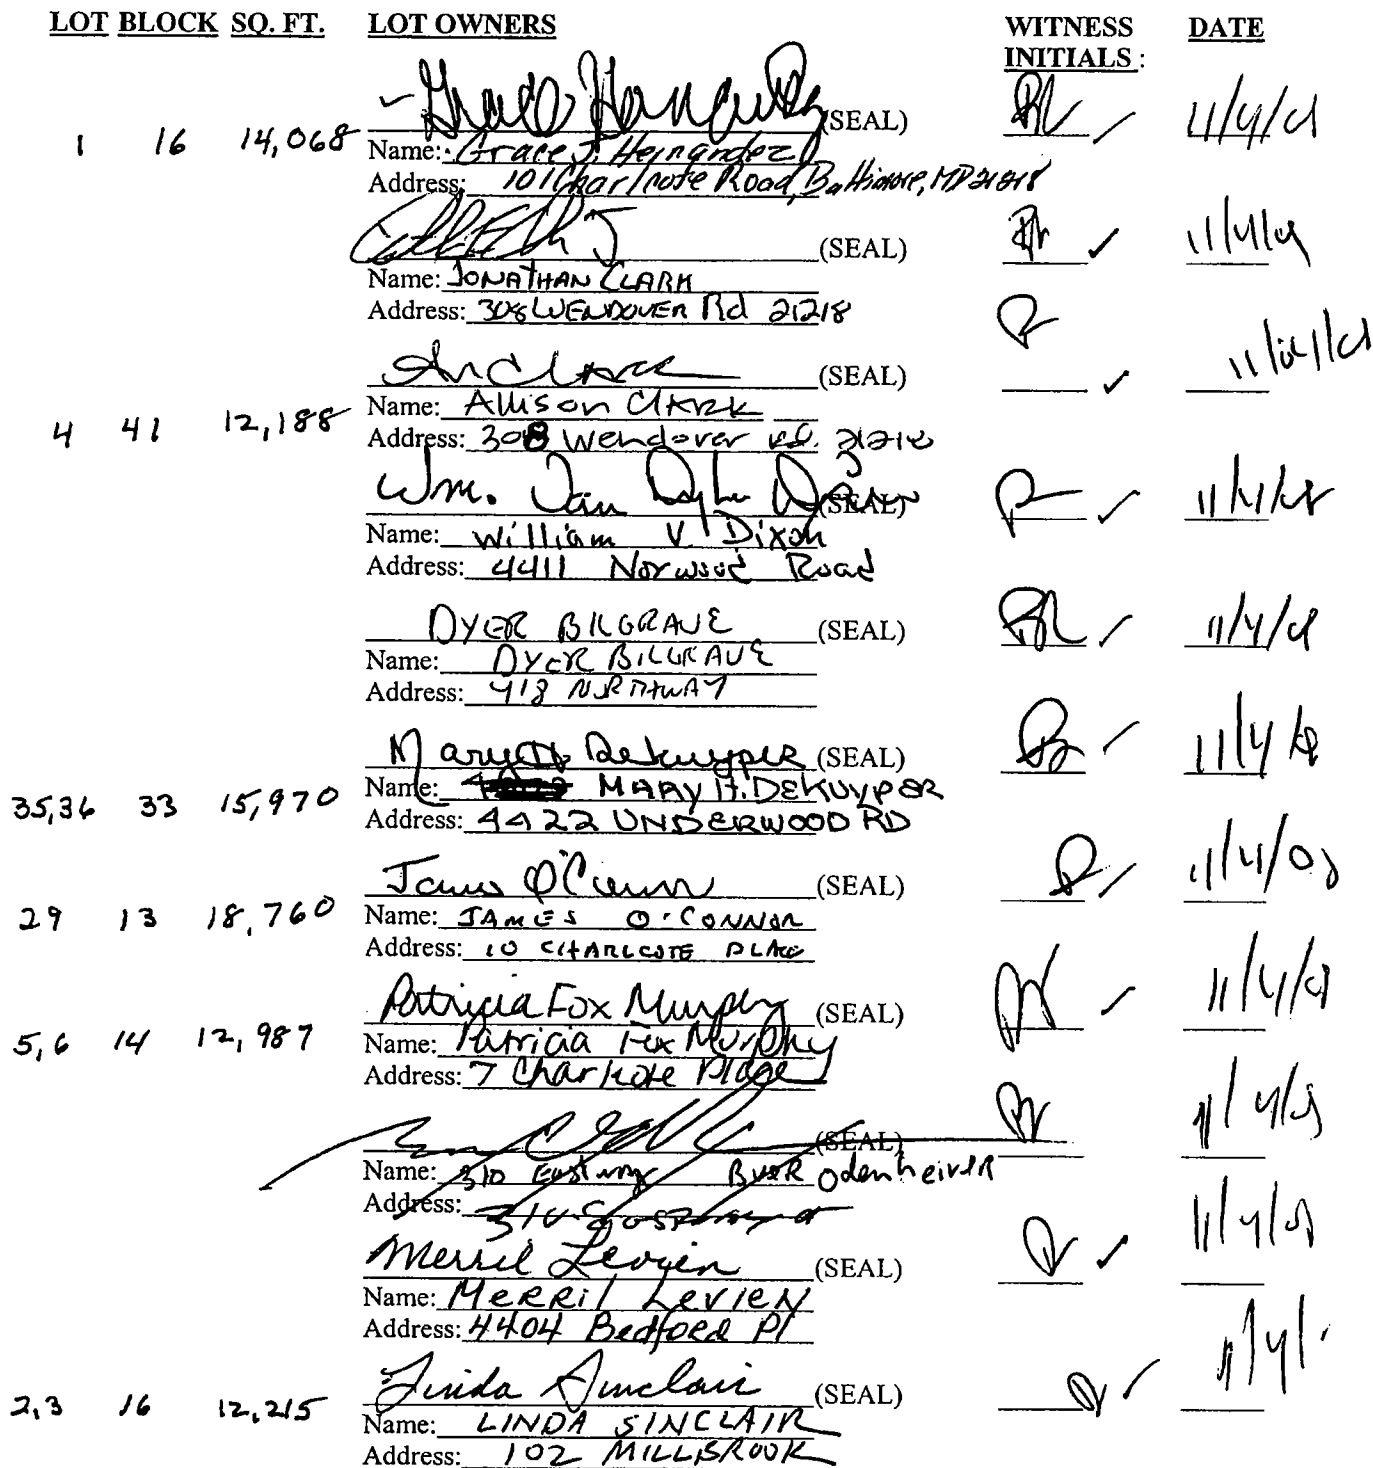 LOT BLOCK SQ. FT. LOT OWNERS WITNESS INITIALS : DATE
(SEAL)
1 16 14,068 Name: Grace J. Hernandez
Address: 101 Charlcote Road, Baltimore, MD 21218
(SEAL)
Name: JONATHAN CLARK
Address: 308 WENDOVER Rd 21218
(SEAL)
Name: Allison Clark
4 41 12,188 Address: 308 Wendover rd. 21218
Wm. Van Dyke Dixon (SEAL) 11/4/08
Name: William V. Dixon
Address: 4411 Norwood Road
DYER BILGRAVE (SEAL)
Name: DYER BILGRAVE
Address: 418 NORTHWAY
Mary H. DeKuyper (SEAL)
Name: MARY H. DEKUYPER
35,36 33 15,970 Address: 4422 UNDERWOOD RD
James O'Connor (SEAL) 11/4/08
29 13 18,760 Name: JAMES O'CONNOR
Address: 10 CHARLCOTE PLACE
Patricia Fox Murphy (SEAL)
5,6 14 12,987 Name: Patricia Fox Murphy
Address: 7 Charlcote Place
(SEAL)
Name: 310 Eastway Odenheimer
Address: 310
Merril Levien (SEAL)
Name: MERRil LEVIEN
Address: 4404 Bedford Pl
Linda Sinclair (SEAL)
2,3 16 12,215 Name: LINDA SINCLAIR
Address: 102 MILLBROOK